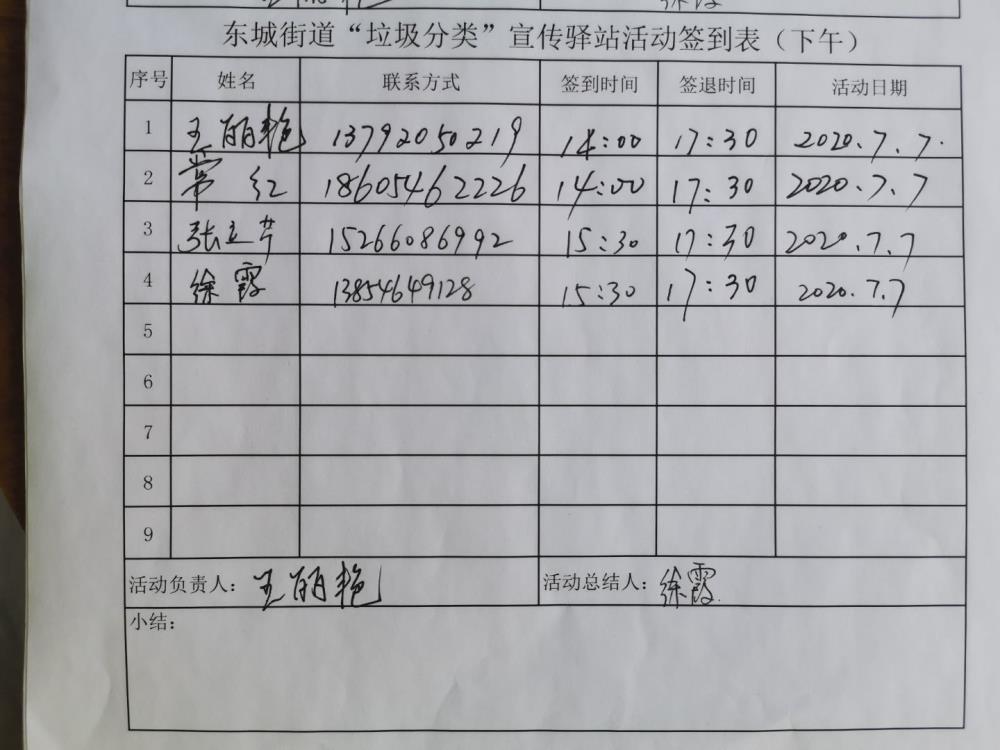 东城街道“垃圾分类”宣传驿站活动签到表（下午）
序号 姓名 联系方式 签到时间 签退时间 活动日期
1 王丽艳 13792050219 14:00 17:30 2020.7.7.
2 常红 18605462226 14:00 17:30 2020.7.7
3 张立芹 15266086992 15:30 17:30 2020.7.7
4 徐霞 13854649128 15:30 17:30 2020.7.7
5
6
7
8
9
活动负责人：王丽艳 活动总结人：徐霞
小结：